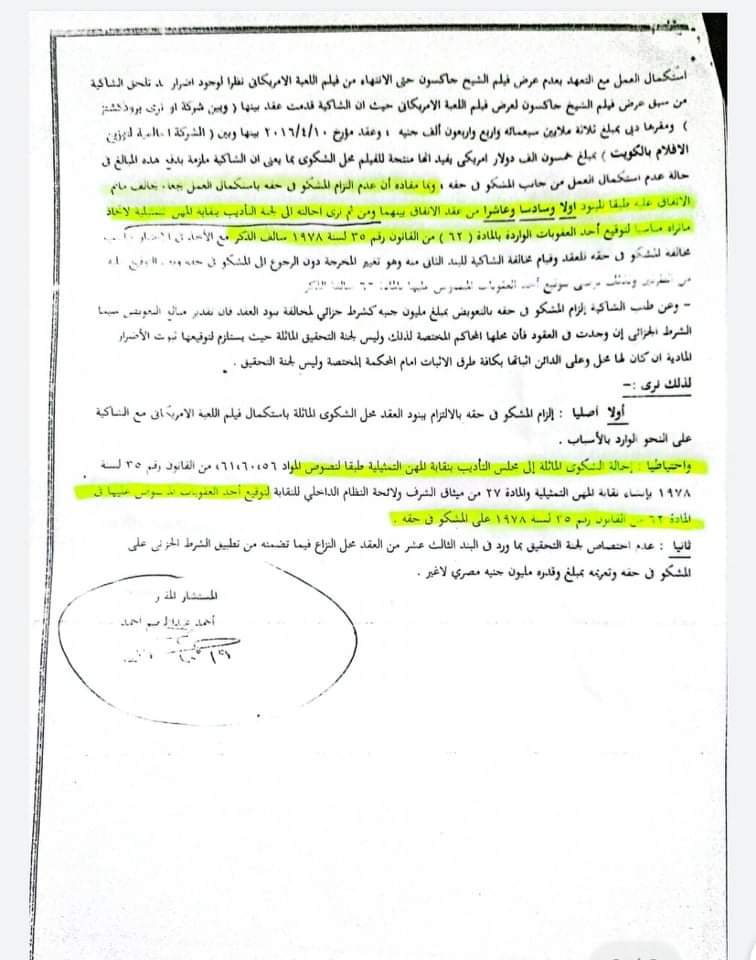 استكمال العمل مع التعهد بعدم عرض فيلم الشيخ جاكسون حتى الانتهاء من فيلم اللعبة الامريكانى نظرا لوجود اضرار قد تلحق الشاكية
من سبق عرض فيلم الشيخ جاكسون لعرض فيلم اللعبة الامريكانى حيث ان الشاكية قدمت عقد بينها ( وبين شركة برودكشنز
) ومقرها دبى بمبلغ ثلاثة ملايين سبعمائه واربع واربعون ألف جنيه ، وعقد مؤرخ ٢٠١٦/٤/١٠ بينها وبين ( الشركة العالمية لتوزيع
الافلام بالكويت ) بمبلغ خمسون الف دولار امريكى يفيد انها منتجة للفيلم محل الشكوى بما يعنى ان الشاكية ملزمة بدفع هذه المبالغ فى
حالة عدم استكمال العمل من جانب المشكو فى حقه ، وبما مفاده أن عدم التزام المشكو فى حقه باستكمال العمل جعله خالف ماتم
الاتفاق عليه طبقا للبنود اولا وسادسا وعاشرا من عقد الاتفاق بينهما ومن ثم نرى احالته الى لجنة التأديب بنقابة المهن التمثيلية لاتخاذ
ماتراه مناسبا لتوقيع أحد العقوبات الواردة بالمادة ( ٦٢ ) من القانون رقم ٣٥ لسنة ١٩٧٨ سالف الذكر مع الأخذ فى الاعتبار
مخالفة المشكو فى حقه للعقد وقيام مخالفة الشاكية للبند الثانى منه وهو تغيير المخرجة دون الرجوع الى المشكو فى حقه
من الطرفين توقيع أحد العقوبات المنصوص عليها بالمادة ٦٢ سالفة الذكر
– وعن طلب الشاكية إلزام المشكو فى حقه بالتعويض بمبلغ مليون جنيه كشرط جزائي لمخالفة بنود العقد فان تقدير مبالغ التعويض سيما
الشرط الجزائى إن وجدت فى العقود فأن محلها المحاكم المختصة لذلك وليس لجنة التحقيق الماثلة حيث يستلزم لتوقيعها ثبوت الأضرار
المادية ان كان لها محل وعلى الدائن اثباتها بكافة طرق الاثبات امام المحكمة المختصة وليس لجنة التحقيق .
لذلك نرى :–
أولا أصليا : إلزام المشكو فى حقه بالالتزام ببنود العقد محل الشكوى الماثلة باستكمال فيلم اللعبة الامريكانى مع الشاكية
على النحو الوارد بالأسباب .
واحتياطيا : إحالة الشكوى الماثلة إلى مجلس التأديب بنقابة المهن التمثيلية طبقا لنصوص المواد ٦١،٦٠،٥٦ من القانون رقم ٣٥ لسنة
١٩٧٨ بإنشاء نقابة المهن التمثيلية والمادة ٢٧ من ميثاق الشرف ولائحة النظام الداخلي للنقابة لتوقيع أحد العقوبات المنصوص عليها فى
المادة ٦٢ من القانون رقم ٣٥ لسنة ١٩٧٨ على المشكو فى حقه .
ثانيا : عدم اختصاص لجنة التحقيق بما ورد فى البند الثالث عشر من العقد محل النزاع فيما تضمنه من تطبيق الشرط الجزئى على
المشكو فى حقه وتغريمه بمبلغ وقدره مليون جنيه مصري لاغير .
المستشار
أحمد احمد